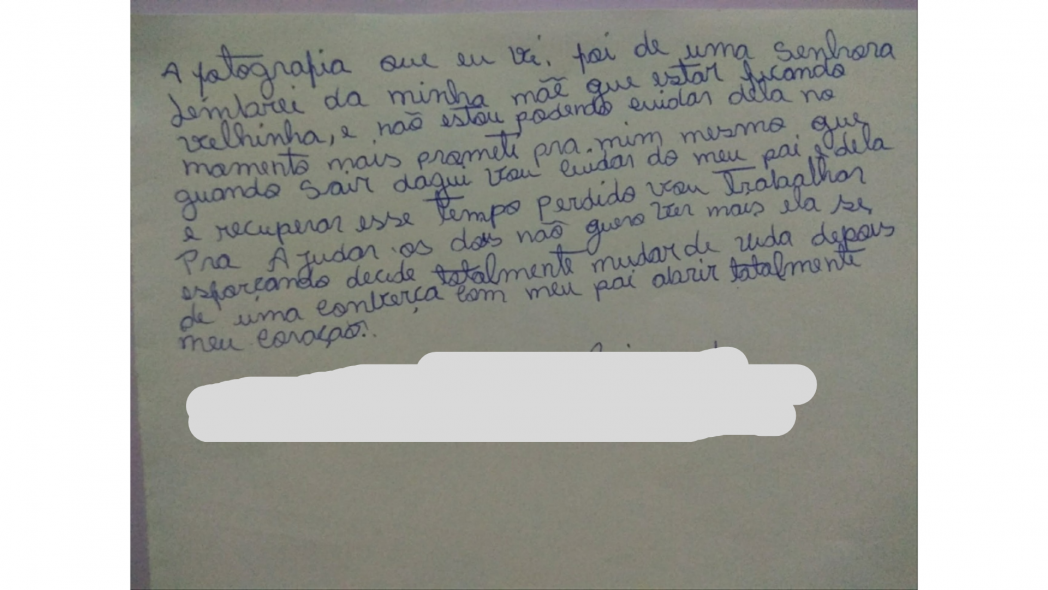 A fotografia que eu vi, foi de uma senhora
Lembrei da minha mãe que estar ficando
velhinha, e não estou podendo cuidar dela no
momento mais prometi pra mim mesmo que
quando sair daqui vou cuidar do meu pai e dela
e recuperar esse tempo perdido vou Trabalhar
Pra Ajudar os dois não quero ver mais ela se
esforçando decide totalmente mudar de vida depois
de uma converça com meu pai abrir totalmente
meu coração!.